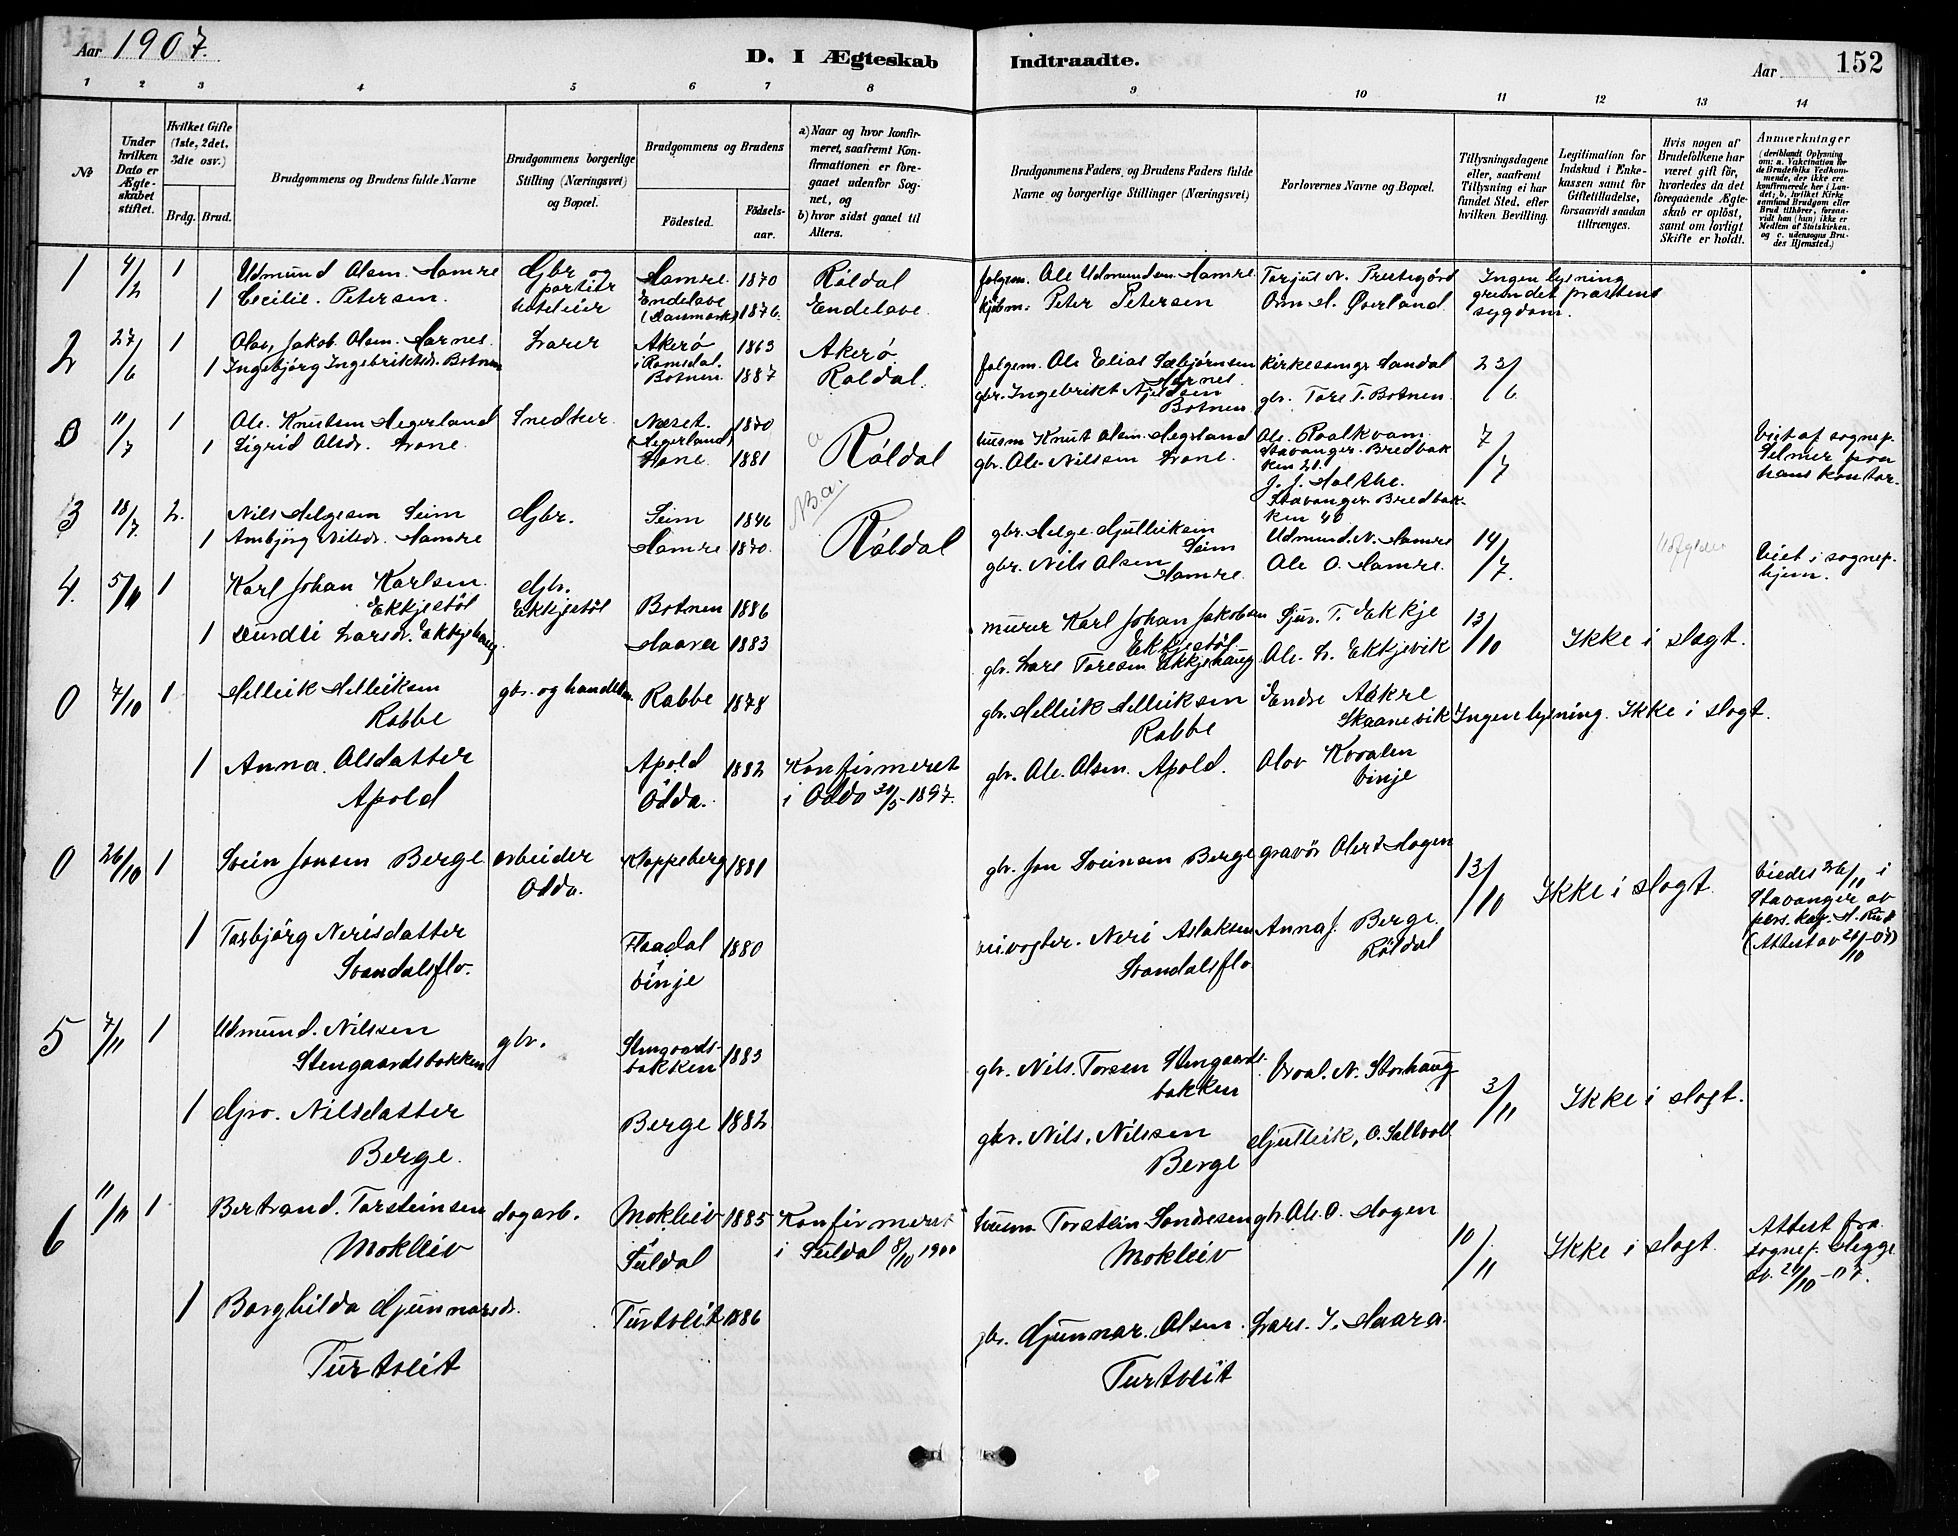 Aar 1907.
D. I Ægteskab Indtraadte.
Aar 152
1 2 3 4 5 6 7 8 9 10 11 12 13 14
No
Under hvilken Dato er Ægteskabet stiftet.
Hvilket Gifte (1ste, 2det, 3die osv.)
Brdg. Brud.
Brudgommens og Brudens fulde Navne
Brudgommens borgerlige Stilling (Næringsvei) og Bopæl.
Brudgommens og Brudens
Fødested.
Fødsels-aar.
a) Naar og hvor konfirmeret, saafremt Konfirmationen er foregaaet udenfor Sognet, og
b) hvor sidst gaaet til Alters.
Brudgommens Faders, og Brudens Faders fulde Navne og borgerlige Stillinger (Næringsvei)
Forlovernes Navne og Bopæl.
Tillysningsdagene eller, saafremt Tillysning ei har fundet Sted, efter hvilken Bevilling.
Legitimation for Indskud i Enkekassen samt for Giftetilladelse, forsaavidt saadan tiltrænges.
Hvis nogen af Brudefolkene har været gift før, hvorledes da det foregaaende Ægteskab er opløst, samt om lovligt Skifte er holdt.
Anmærkninger
(deriblandt Oplysning om: a. Vakcination for de Brudefolks Vedkommende, der ikke ere konfirmerede her i Landet; b. hvilket Kirkesamfund Brudgom eller Brud tilhører, forsaavidt han (hun) ikke er Medlem af Statskirken, og c. udensogns Brudes Hjemsted.)
1 4/2 1 Udmund Olsen. Hamre Gbr og partier hoteleier Hamre. 1870 Røldal folgem. Ole Udmundsen. Hamre Torjus N. Prestegård Ingen lysning grundet præstens sygdom.
1 Cecilie. Petersen. Endelave (Danmark) 1876. Endelave. kjøbm. Peter Petersen Orm H. Øverland
2 27/6 1 Olav, Jakob Olsen. Aarnes. Lærer Akerø i Romsdal. 1863 Akerø folgem. Ole Elias Sæbjørnsen Aarnes. kirkesangr Sandal 23/6
1 Ingebjørg Ingebriktsdr. Botnen Botnen. 1887 Røldal. gbr. Ingebrikt Njeldsen Botnen gbr. Tore T. Botnen.
0 11/7 1 Ole. Knutsen Hegerland Snedker. Næset. (Hegerland) 1870 a Røldal husm Knut Olsen. Hegerland Ole. Roalkvam Stavanger. Bredbakken 21. 7/7 Viet af sognep. Selmer paa hans kontor.
1 Sigrid Olsdr. Lone. Lone 1881 gbr. Ole Nilsen Lone. J. J. Molthe. Stavanger Bredbakken 40
3 18/7. 2. Nils Helgesen Seim Gbr. Seim 1846 NB a. Røldal gbr. Helge Gjulleiksen Seim Udmund. N. Hamre 14/7. Viet i sognep. hjem.
1 Ambjørg Nilsdr. Hamre Hamre 1870. gbr. Nils Olsen Hamre. Ole O. Hamre.
4. 5/10 1 Karl Johan Karlsen. Ekkjestøl Gbr. Ekkjestøl Botnen 1886 murer Karl Johan Jakobsen Ekkjestøl Sjur. T. Ekkje 13/10 Ikke i slægt.
1 Durdei Larsdr. Ekkjehaug Haara 1883 gbr. Lars Toresen Ekkjehaug Ole. L. Ekkjevik
0 7/10 1 Helleik Helleiksen Rabbe gbr. og handelsm. Rabbe 1878 gbr. Helleik Helleiksen Rabbe Endre Aakre Skaanevik Ingen lysning. Ikke i slægt.
1 Anna. Olsdatter Apold Apold Odda. 1882 Konfirmeret i Odda 30/5-1897. gbr. Ole. Olsen. Apold. Olav Kvaalen Vinje
0 26/10 1 Svein Jonsen Berge arbeider Odda. Kloppeberg 1881 gbr. Jon Sveinsen Berge gravør Olert Hagen 13/10 Ikke i slægt. Viedes 26/10 i Stavanger av pers. kap. H. Rud (Attest av 26/10-07)
1 Torbjørg Nerisdatter Svandalsflo. Flaadal i Vinje 1880 veivogter. Neri Aslaksen Svandalsflo Anna J. Berge. Røldal
5 7/11 1 Udmund. Nilsen Stengaardsbakken gbr. Stengaardsbakken 1883 gbr. Nils. Torsen Stengaardsbakken Oroal. N. Storhaug 3/11 Ikke i slægt.
1 Gjro. Nilsdatter Berge. Berge 1882 gbr. Nils. Nilsen Berge Gjulleik, O. Saltvoll
6 11/11 1. Bertrand. Torsteinsen Mokleiv dagarb. Mokleiv i Suldal 1885 Konfirmeret i Suldal 8/10 1900 husm Torstein Sondresen Mokleiv gbr. Ole. O. Hagen 10/11 Ikke i slægt. Attest fra sognep. Hegge av 24/10-07.
1 Borghilda Gjunnarsdr. Turtveit Turtveit 1886 gbr. Gjunnar. Olsen. Turtveit Lars. I. Haara.